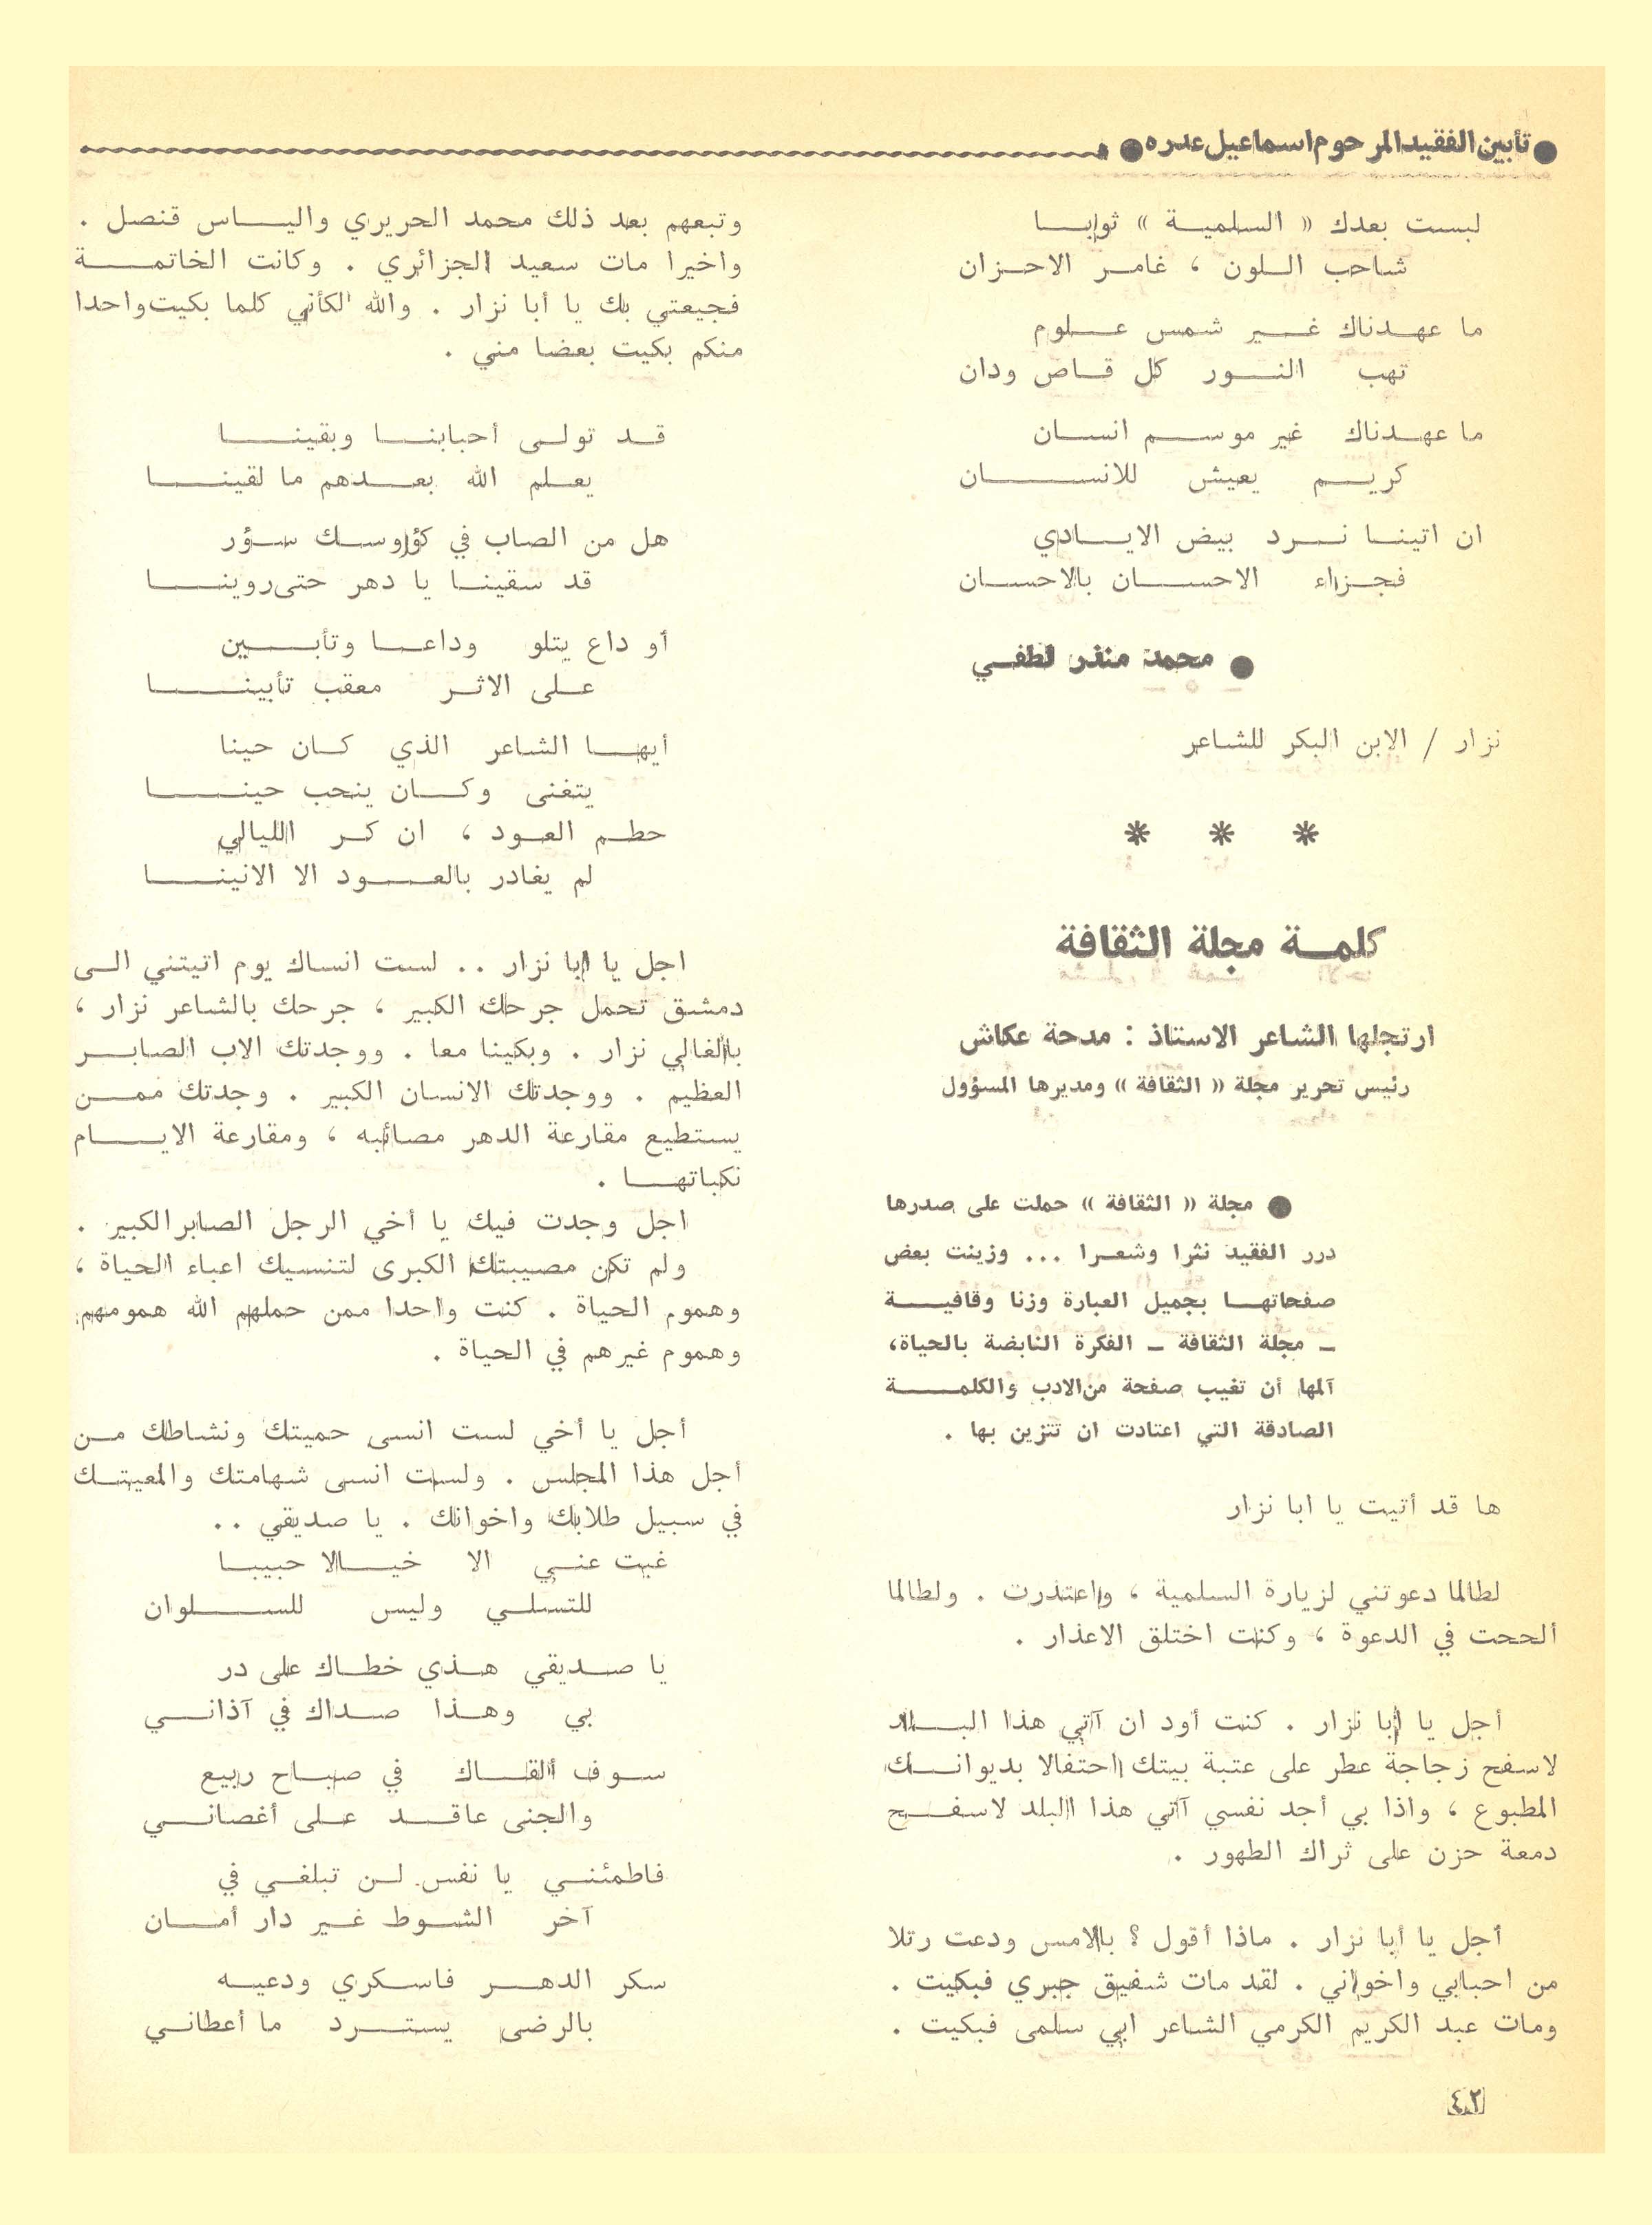 ● تأبين الفقيد المرحوم اسماعيل عدره ●
لبست بعدك « السلمية » ثوابا
شاحب اللون ، غامر الاحزان
ما عهدناك غير شمس علوم
تهب النور كل قاص ودان
ما عهدناك غير موسم انسان
كريم يعيش للانسان
ان اتينا نرد بيض الايادي
فجزاء الاحسان بالاحسان
● محمد منذر لطفي
نزار / الابن البكر للشاعر
* * *
كلمة مجلة الثقافة
ارتجلها الشاعر الاستاذ : مدحة عكاش
رئيس تحرير مجلة « الثقافة » ومديرها المسؤول
● مجلة « الثقافة » حملت على صدرها
درر الفقيد نثرا وشعرا ... وزينت بعض
صفحاتها بجميل العبارة وزنا وقافية
– مجلة الثقافة – الفكرة النابضة بالحياة،
آلمها أن تغيب صفحة من الادب والكلمة
الصادقة التي اعتادت ان تتزين بها .
ها قد أتيت يا ابا نزار
لطالما دعوتني لزيارة السلمية ، واعتذرت . ولطالما
ألححت في الدعوة ، وكنت اختلق الاعذار .
أجل يا أبا نزار . كنت أود ان آتي هذا البلد
لاسفح زجاجة عطر على عتبة بيتك احتفالا بديوانك
المطبوع ، واذا بي أجد نفسي آتي هذا البلد لاسفح
دمعة حزن على ثراك الطهور .
أجل يا أبا نزار . ماذا أقول ؟ بالامس ودعت رتلا
من احبابي واخواني . لقد مات شفيق جبري فبكيت .
ومات عبد الكريم الكرمي الشاعر ابي سلمى فبكيت .
وتبعهم بعد ذلك محمد الحريري والياس قنصل .
واخيرا مات سعيد الجزائري . وكانت الخاتمة
فجيعتي بك يا أبا نزار . والله لكأني كلما بكيت واحدا
منكم بكيت بعضا مني .
قد تولى أحبابنا وبقينا
يعلم الله بعدهم ما لقينا
هل من الصاب في كؤوسك سؤر
قد سقينا يا دهر حتى روينا
أو داع يتلو وداعا وتأبين
على الاثر معقب تأبينا
أيها الشاعر الذي كان حينا
يتغنى وكان ينحب حينا
حطم العود ، ان كر الليالي
لم يغادر بالعود الا الانينا
اجل يا ابا نزار .. لست انساك يوم اتيتني الى
دمشق تحمل جرحك الكبير ، جرحك بالشاعر نزار ،
بالغالي نزار . وبكينا معا . ووجدتك الاب الصابر
العظيم . ووجدتك الانسان الكبير . وجدتك ممن
يستطيع مقارعة الدهر مصائبه ، ومقارعة الايام
نكباتها .
اجل وجدت فيك يا أخي الرجل الصابر الكبير .
ولم تكن مصيبتك الكبرى لتنسيك اعباء الحياة ،
وهموم الحياة . كنت واحدا ممن حملهم الله همومهم
وهموم غيرهم في الحياة .
أجل يا أخي لست انسى حميتك ونشاطك من
أجل هذا المجلس . ولست انسى شهامتك والمعيتك
في سبيل طلابك واخوانك . يا صديقي ..
غبت عني الا خيالا حبيبا
للتسلي وليس للسلوان
يا صديقي هذي خطاك على در
بي وهذا صداك في آذاني
سوف ألقاك في صباح ربيع
والجنى عاقد على أغصاني
فاطمئني يا نفس لن تبلغي في
آخر الشوط غير دار أمان
سكر الدهر فاسكري ودعيه
بالرضى يسترد ما أعطاني
٤٢